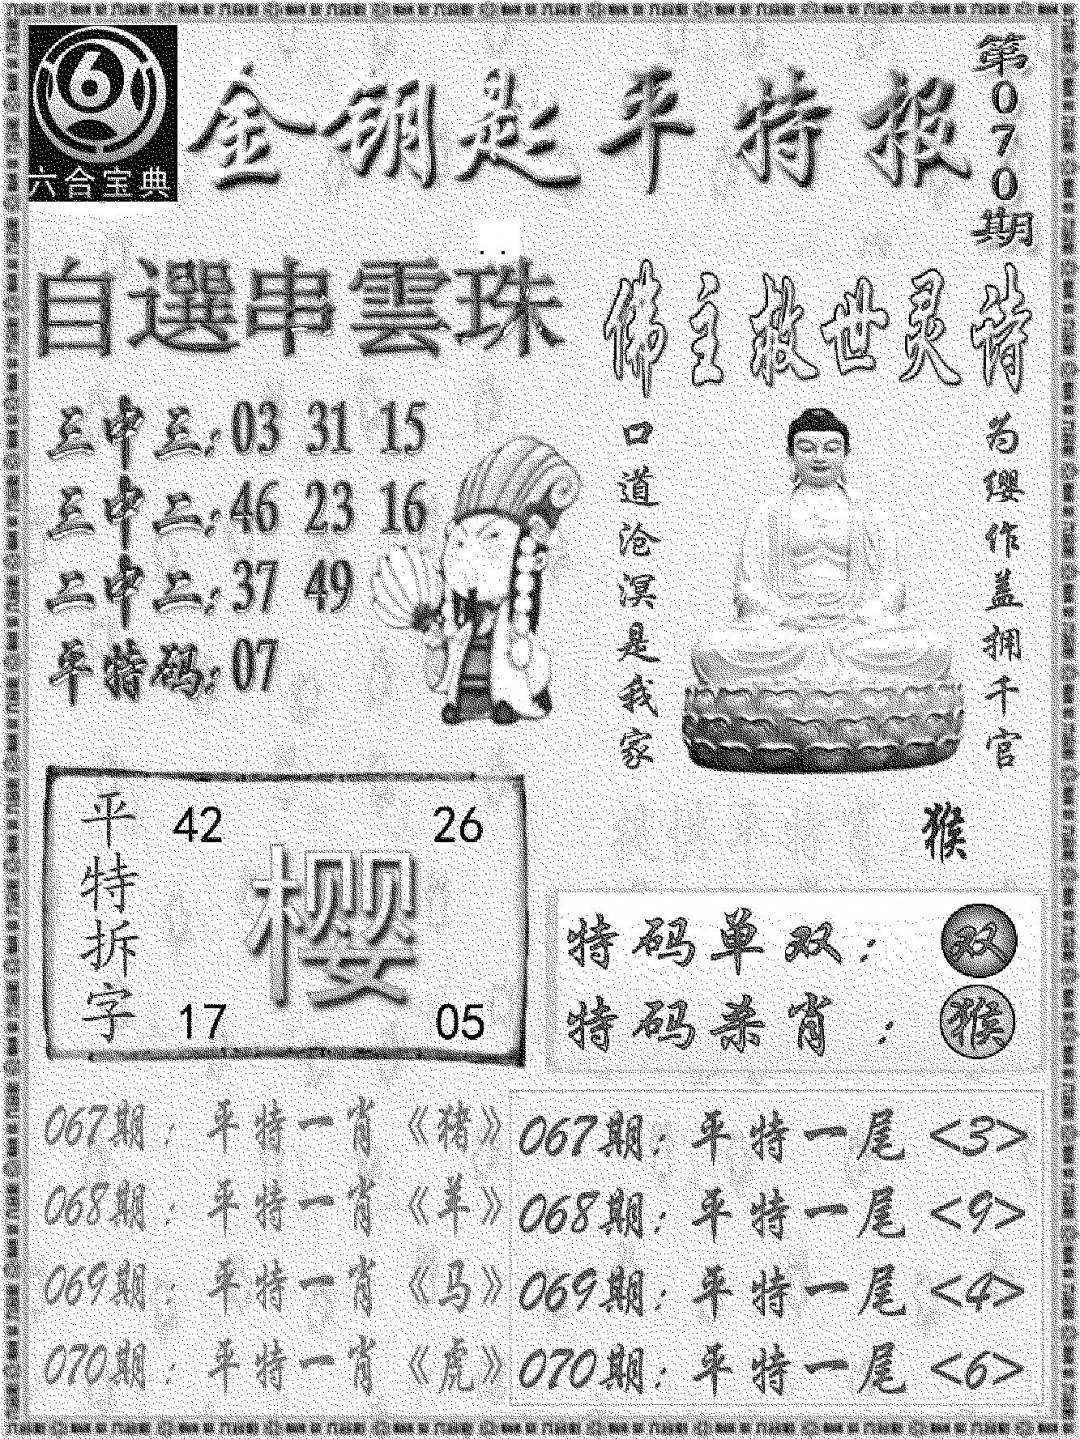 六合宝典
金钥匙平特报
第070期
自選串雲珠
三中三: 03 31 15
三中二: 46 23 16
二中二: 37 49
平特码: 07
佛主救世灵诗
为缨作盖拥千官
口道沧溟是我家
猴
平特拆字
42 26
樱
17 05
特码单双: 双
特码杀肖: 猴
067期: 平特一肖《猪》
068期: 平特一肖《羊》
069期: 平特一肖《马》
070期: 平特一肖《虎》
067期: 平特一尾<3>
068期: 平特一尾<9>
069期: 平特一尾<4>
070期: 平特一尾<6>